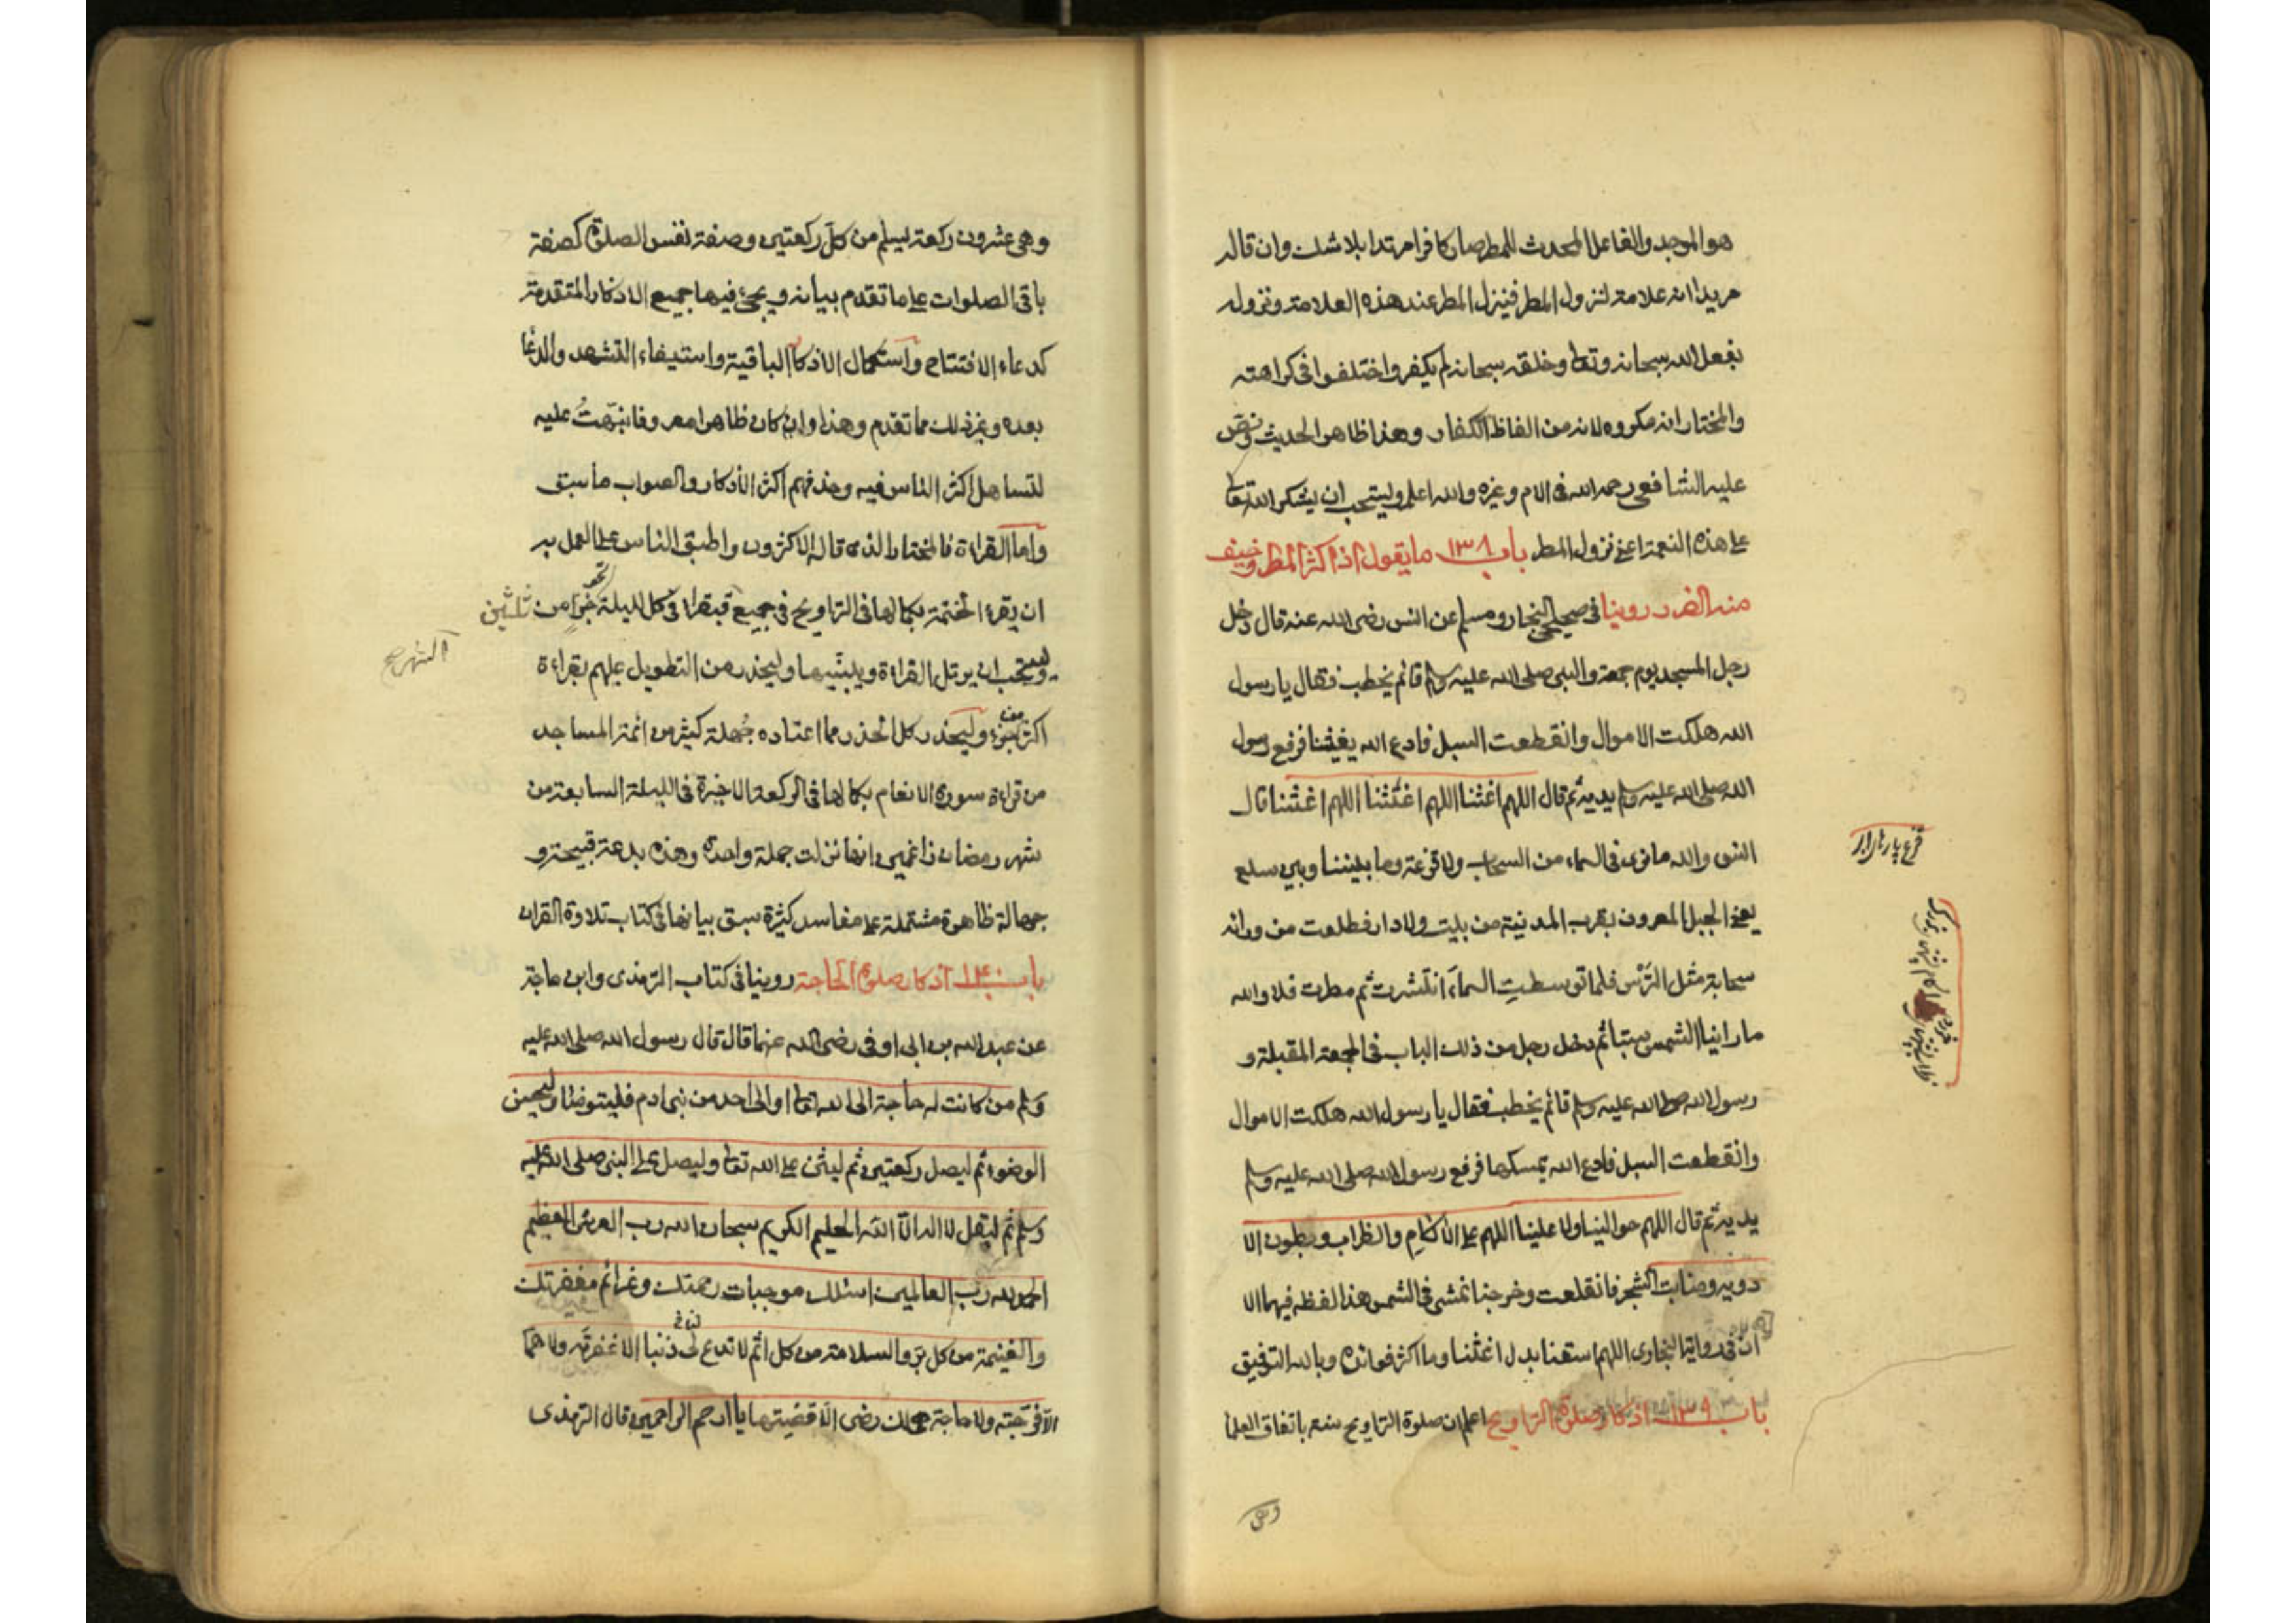 هو الموجد والفاعل المحدث للمطر صار كافرا مرتدا بلا شك وان قاله
مريدا انه علامة لنزول المطر فينزل المطر عند هذه العلامة ونزوله
بفعل الله سبحانه وتعا وخلقه سبحانه لم يكفر واختلفوا فى كراهته
والمختار انه مكروه لانه من الفاظ الكفار وهذا ظاهر الحديث ونص
عليه الشافعى رحمه الله فى الام وغيره والله اعلم ويستحب ان يشكر الله تعا
على هذه النعمة اعنى نزول المطر باب ١٣٨ ما يقول اذا كثر المطر وخيف
منه الضرر روينا فى صحيحى البخارى ومسلم عن انس رضى الله عنه قال دخل
رجل المسجد يوم جمعة والنبى صلى الله عليه وسلم قائم يخطب فقال يا رسول
الله هلكت الاموال وانقطعت السبل فادع الله يغيثنا فرفع رسول
الله صلى الله عليه وسلم يديه ثم قال اللهم اغثنا اللهم اغثنا اللهم اغثنا قال
انس والله ما نرى فى السماء من السحاب ولا قزعة وما بيننا وبين سلع
يعنى الجبل المعروف بقرب المدينة من بيت ولا دار فطلعت من ورائه
سحابة مثل الترس فلما توسطت السماء انتشرت ثم مطرت فلا والله
ما راينا الشمس سبتا ثم دخل رجل من ذلك الباب فى الجمعة المقبلة و
رسول الله صلى الله عليه وسلم قائم يخطب فقال يا رسول الله هلكت الاموال
وانقطعت السبل فادع الله يمسكها فرفع رسول الله صلى الله عليه وسلم
يديه ثم قال اللهم حوالينا ولا علينا اللهم على الاكام والظراب وبطون الا
دويه ومنابت الشجر فانقلعت وخرجنا نمشى فى الشمس هذا لفظه فيهما الا
ان فى رواية البخارى اللهم اسقنا بدل اغثنا وما اكثر فوائده وبالله التوفيق
باب ١٣٩ اذكار صلوة التراويح اعلم ان صلوة التراويح سنة باتفاق العلما
وهى
وهى عشرون ركعة يسلم من كل ركعتين وصفة نفس الصلوة كصفة
باقى الصلوات على ما تقدم بيانه ويجئ فيها جميع الاذكار المتقدمة
كدعاء الافتتاح واستكمال الاذكار الباقية واستيفاء التشهد والدعا
بعده وغير ذلك مما تقدم وهذا وان كان ظاهرا معروفا نبهت عليه
لتساهل اكثر الناس فيه وحذفهم اكثر الاذكار والصواب ما سبق
واما القراءة فالمختار الذى قاله الاكثرون واطبق الناس على العمل به
ان يقرء الختمة بكمالها فى التراويح فى جميع فيقرا فى كل ليلة نحو جزء من ثلثين
الشهر صح
ويستحب ان يرتل القراءة ويبينها وليحذر من التطويل عليهم بقراءة
اكثر من جزء وليحذر كل الحذر مما اعتاده جهلة كثير من ائمة المساجد
من قراءة سورة الانعام بكمالها فى الركعة الاخيرة فى الليلة السابعة من
شهر رمضان زاعمين انها نزلت جملة واحدة وهذه بدعة قبيحة و
جهالة ظاهرة مشتملة على مفاسد كثيرة سبق بيانها فى كتاب تلاوة القران
باب ١٤٠ اذكار صلوة الحاجة روينا فى كتاب الترمذى وابن ماجة
عن عبد الله بن ابى اوفى رضى الله عنهما قال قال رسول الله صلى الله عليه
وسلم من كانت له حاجة الى الله تعا او الى احد من بنى ادم فليتوضا وليحسن
الوضوء ثم ليصل ركعتين ثم ليثن على الله تعا وليصل على النبى صلى الله عليه
وسلم ثم ليقل لا اله الا الله الحليم الكريم سبحان الله رب العرش العظيم
الحمد لله رب العالمين اسئلك موجبات رحمتك وعزائم مغفرتك
والغنيمة من كل بر والسلامة من كل اثم لا تدع لى ذنبا الا غفرته ولا هما
الا فرجته ولا حاجة هى لك رضى الا قضيتها يا ارحم الراحمين قال الترمذى